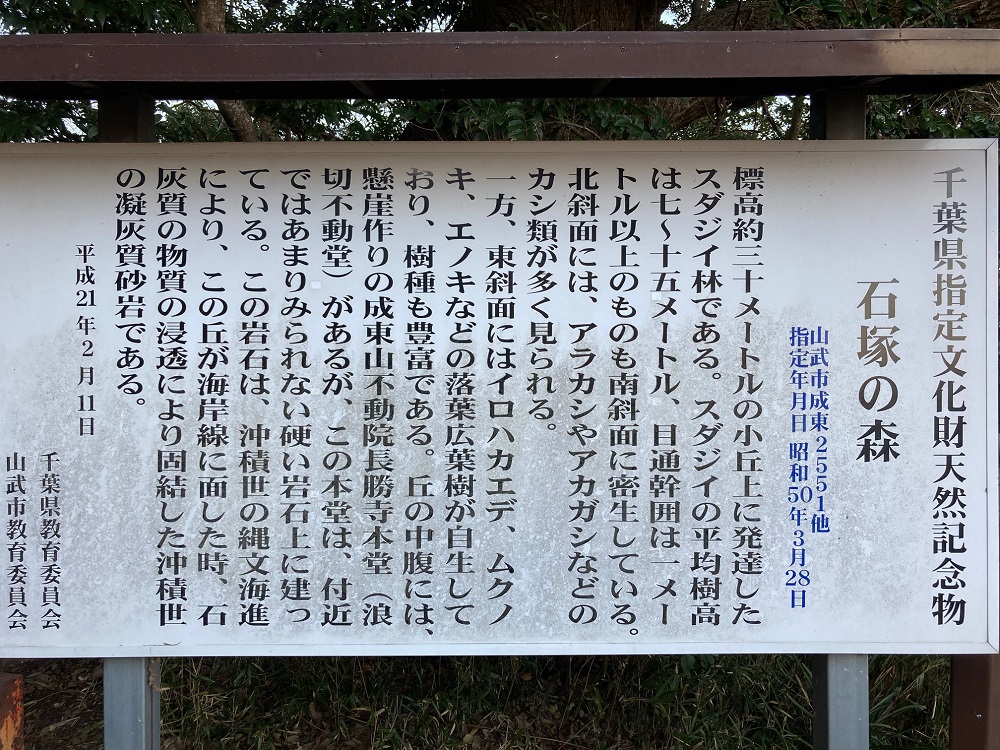 千葉県指定文化財天然記念物
石塚の森
山武市成東2551他
指定年月日 昭和50年3月28日
標高約三十メートルの小丘上に発達した
スダジイ林である。スダジイの平均樹高
は七〜十五メートル、目通幹囲は一メー
トル以上のものも南斜面に密生している。
北斜面には、アラカシやアカガシなどの
カシ類が多く見られる。
一方、東斜面にはイロハカエデ、ムクノ
キ、エノキなどの落葉広葉樹が自生して
おり、樹種も豊富である。丘の中腹には、
懸崖作りの成東山不動院長勝寺本堂（浪
切不動堂）があるが、この本堂は、付近
ではあまりみられない硬い岩石上に建っ
ている。この岩石は、沖積世の縄文海進
により、この丘が海岸線に面した時、石
灰質の物質の浸透により固結した沖積世
の凝灰質砂岩である。
平成21年2月11日
千葉県教育委員会
山武市教育委員会